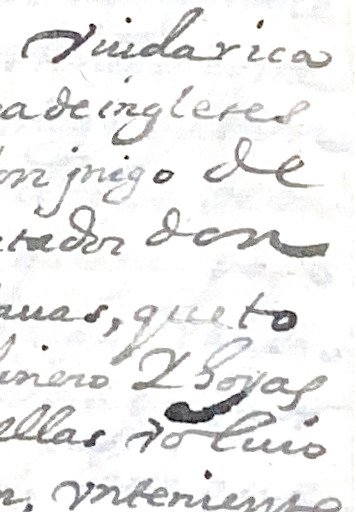 viuda rica
a de ingleses
on jnigo de
tador don
auas, que to
inero Y Joyas
ellas voluio
n, ynteniente